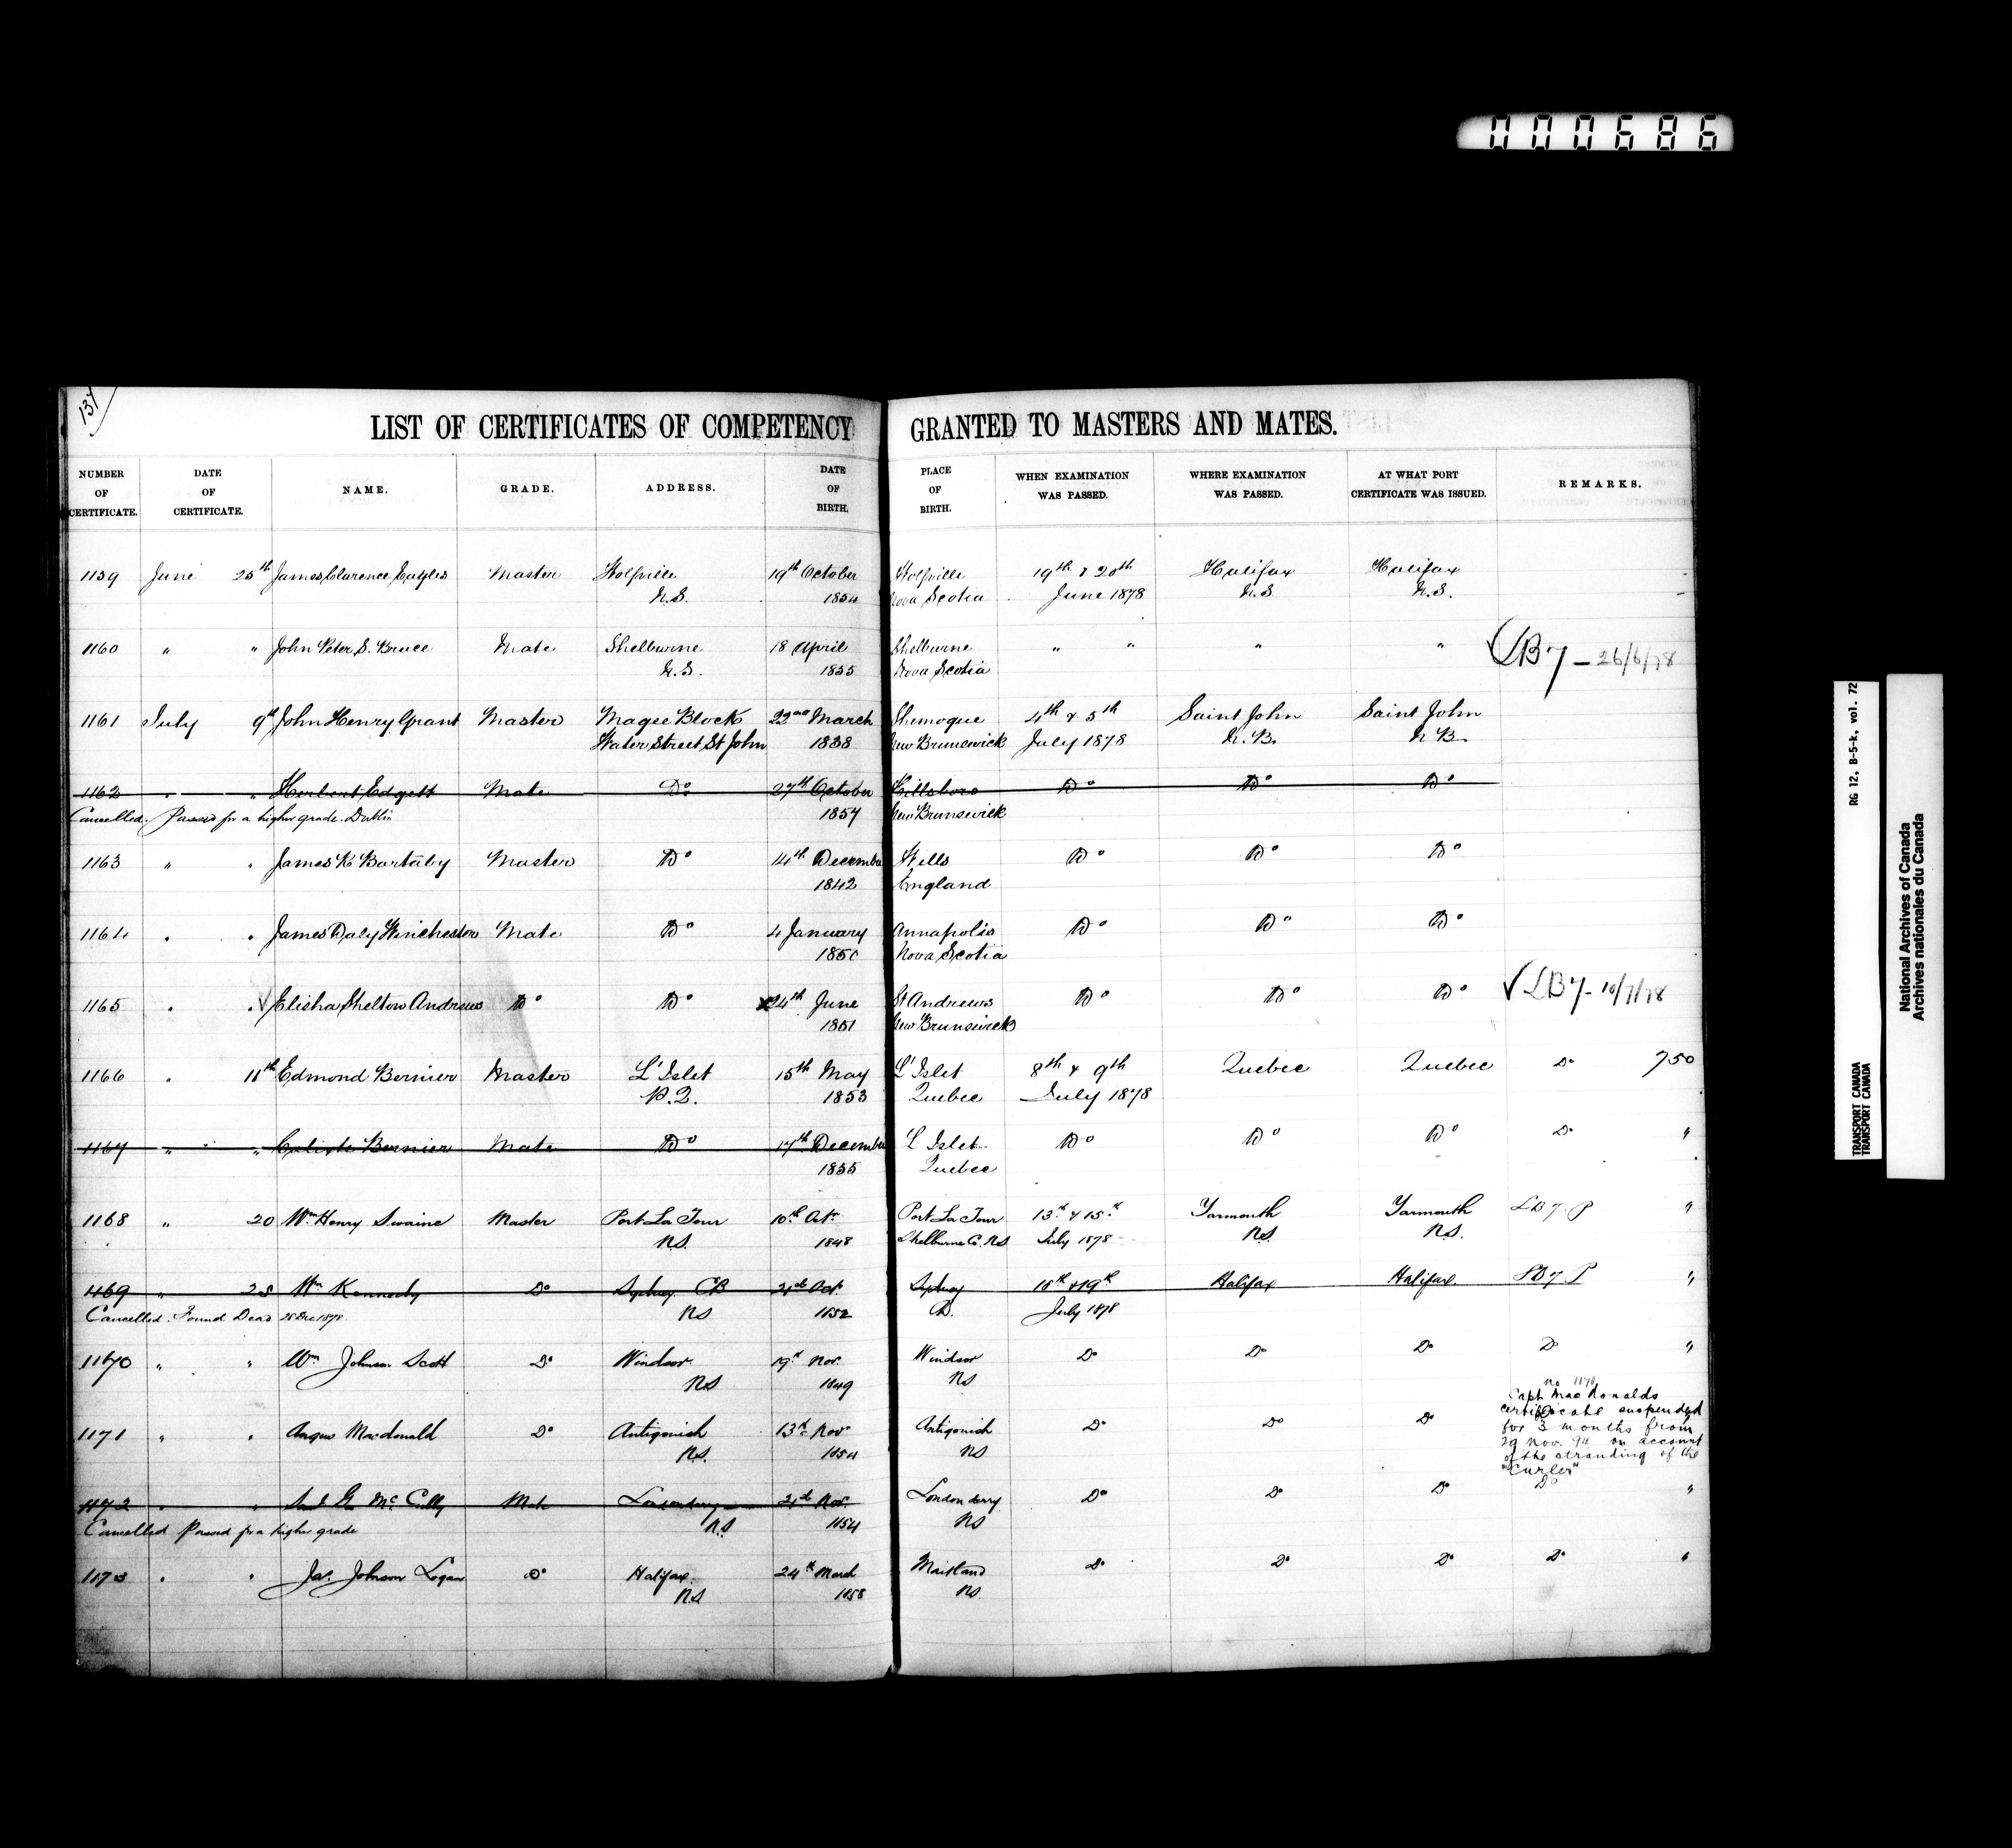 000686
137
LIST OF CERTIFICATES OF COMPETENCY GRANTED TO MASTERS AND MATES.
NUMBER OF CERTIFICATE. DATE OF CERTIFICATE. NAME. GRADE. ADDRESS. DATE OF BIRTH. PLACE OF BIRTH. WHEN EXAMINATION WAS PASSED. WHERE EXAMINATION WAS PASSED. AT WHAT PORT CERTIFICATE WAS ISSUED. REMARKS.
1159 June 25th James Clarence Eagles Master Wolfville 19th October Wolfville 19th & 20th Halifax Halifax
N.S. 1854 Nova Scotia June 1878 N.S N.S.
1160 " " John Peter S. Bruce Mate Shelburne 18 April Shelburne " " " " LB 7 - 26/6/78
N.S. 1855 Nova Scotia
1161 July 9th John Henry Grant Master Magee Block 22nd March Shemogue 4th & 5th Saint John Saint John
Water Street, St John 1838 New Brunswick July 1878 N.B. N B.
1162 " " Herbert Edgett Mate Do 27th October Hillsboro Do Do Do
Cancelled. Passed for a higher grade. 1857 New Brunswick
1163 " " James R Bartaby Master Do 14th December Wells Do Do Do
1842 England
1164 " " James Daly Winchester Mate Do 4 January Annapolis Do Do Do
Nova Scotia
1165 " " Elisha Shelton Andrews Do Do 24th June St Andrews Do Do Do LB 7 - 10/7/78
1851 New Brunswick
1166 " 11th Edmond Bernier Master L'Islet 15th May L'Islet 8th & 9th Quebec Quebec Do 750
P.Q. 1853 Quebec July 1878
1167 " " Calixte Bernier Mate Do 17th December L'Islet Do Do Do Do "
1855 Quebec
1168 " 20 Wm Henry Swaine Master Port La Tour 10th Oct. Port La Tour 13th & 15th Yarmouth Yarmouth LB 7. P "
N.S. 1848 Shelburne Co. N.S July 1878 N.S. N.S.
1169 " 25 Wm Kennedy Do Sydney CB 21st Oct. Sydney 18th & 19th Halifax Halifax LB 7 P "
Cancelled. Found Dead 28 Dec 1878. NS 1852 CB. July 1878
1170 " " Wm Johnson Scott Do Windsor 19th Nov. Windsor Do Do Do Do "
NS 1849 NS
1171 " " Angus Macdonald Do Antigonish 13th Nov. Antigonish Do Do Do Do
N.S. 1854 NS
no 1171
Capt MacDonalds
certificate suspended
for 3 months from
29 Nov. 94 on account
of the stranding of the
"Curlew"
1172 " " Saml G. McCully Mate 21st Nov. Londonderry Do Do Do Do "
Cancelled Passed for a higher grade N.S 1854 NS
1173 " " Jas. Johnson Logan Do Halifax. 24th March Maitland Do Do Do Do "
N.S 1858 NS.
RG 12, B-5-k, vol. 72
TRANSPORT CANADA
TRANSPORT CANADA
National Archives of Canada
Archives nationales du Canada